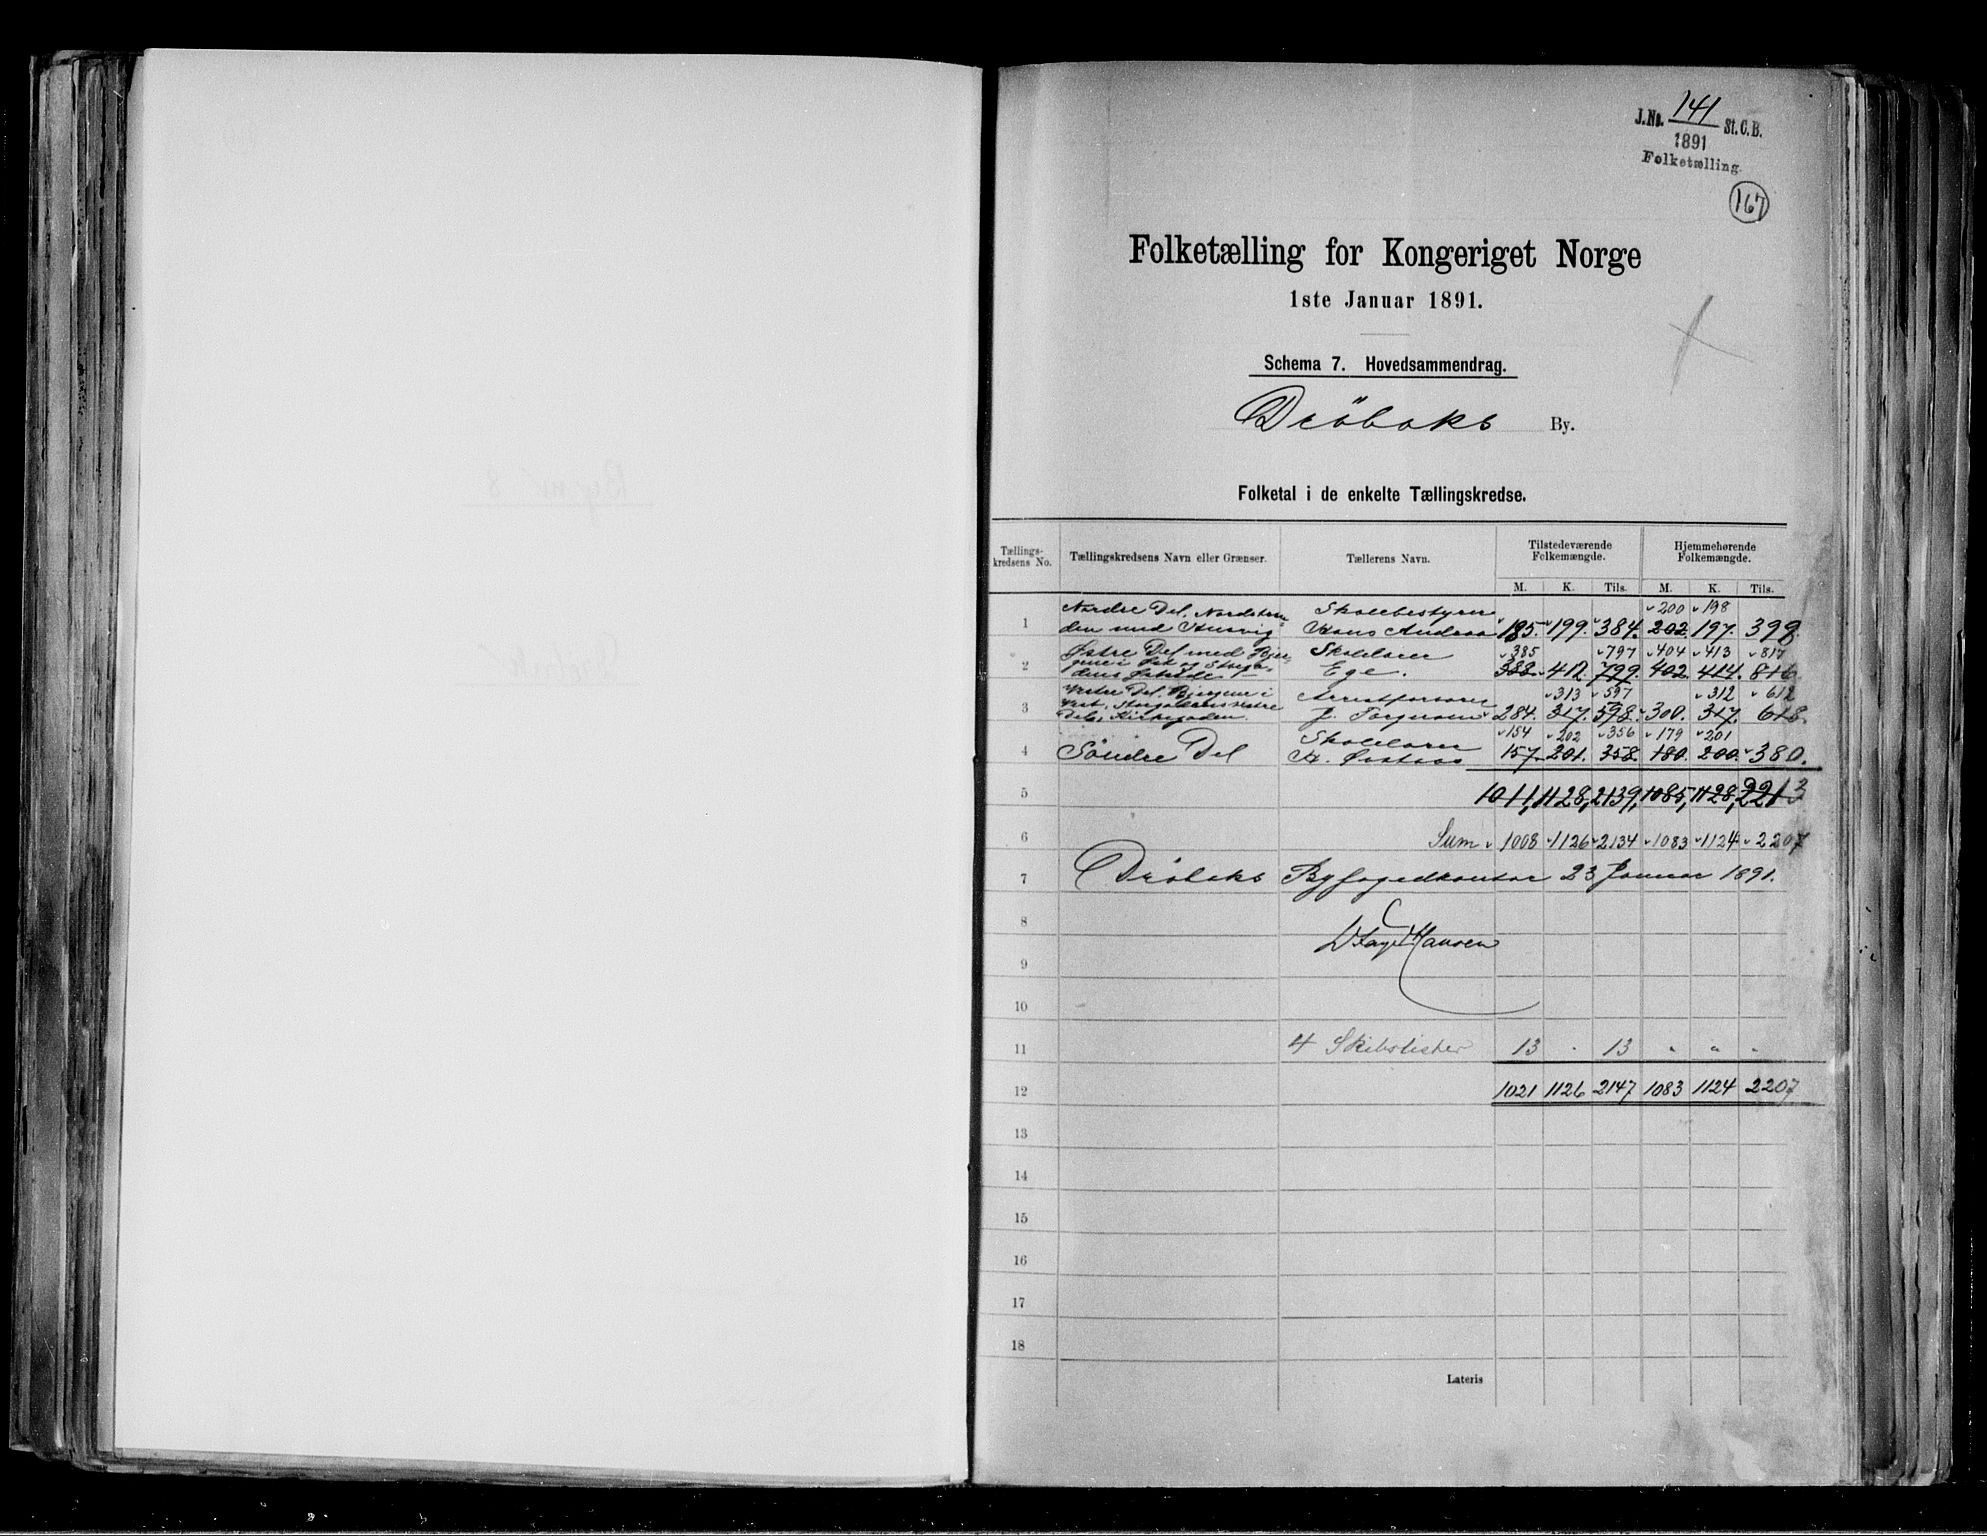 J.No. 141 St. C. B.
1891
Folketælling.
167
Folketælling for Kongeriget Norge
1ste Januar 1891.
Schema 7. Hovedsammendrag.
Dröbaks By.
Folketal i de enkelte Tællingskredse.
Tællings-kredsens No. Tællingskredsens Navn eller Grænser. Tællerens Navn. Tilstedeværende Folkemængde. Hjemmehørende Folkemængde.
M. K. Tils. M. K. Tils.
Nordre Del, Nordstran- Skolebestyrer 200 198
1 den med Husvig Hans 185. 199. 384. 202. 197. 398.
Østre Del med Skolelærer 385 797 404 413 817
2 Ege. 388. 412. 799. 402. 414. 816.
Vestre Del, Bjergene i Arrestforvarer 313 597 312 612
3 J. 284. 317. 598. 300. 317. 618.
Kirkegaden.
Skolelærer 154 202 356 179 201
4 Söndre Del 157. 201. 358. 180. 200. 380.
5 1011, 1128, 2139, 1085, 1128, 2213
6 Sum 1008 1126 2134 1083 1124 2207
7 Dröbaks Byfogedkontor 23 Januar 1891.
8
Hansen
9
10
11 4 Skibslister 13 - 13 " " "
12 1021 1126 2147 1083 1124 2207
13
14
15
16
17
18
Lateris